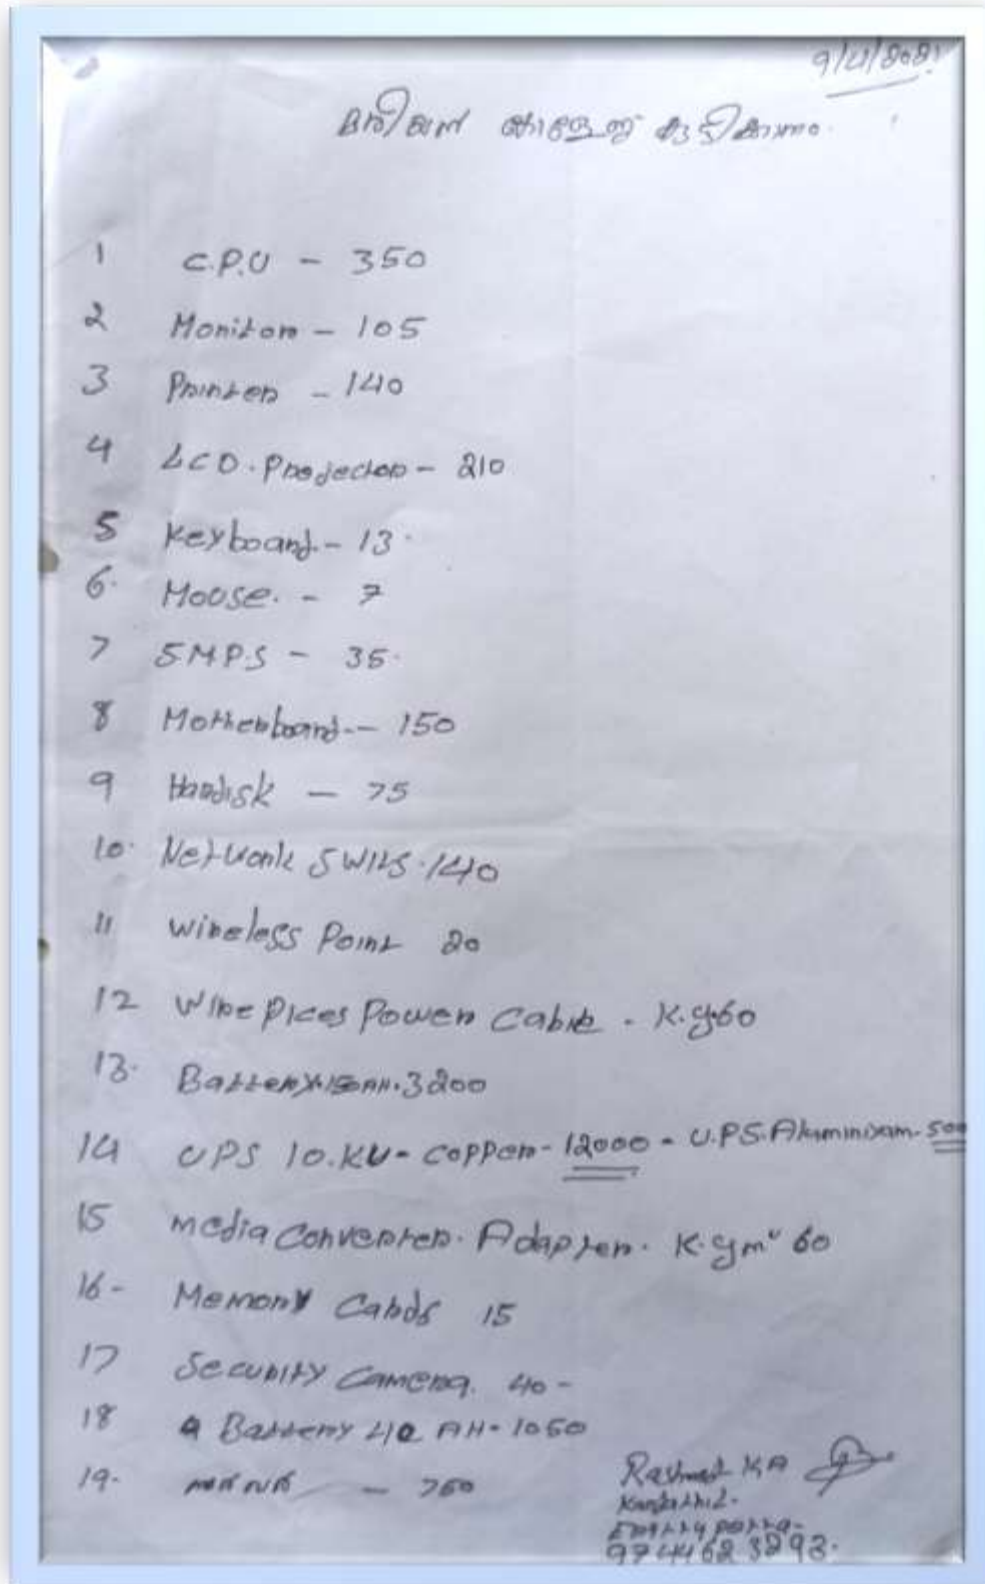 9/4/2021
മരിയൻ കോളേജ് കുട്ടിക്കാനം
1 C.P.U - 350
2 Monitor - 105
3 Printer - 140
4 LCD. Projector - 210
5 Keyboard - 13.
6. Mouse. - 7
7 SMPS - 35.
8 Motherboard -- 150
9 Hardisk - 75
10. Network SWITS. 140
11 Wireless Point 20
12 Wire Pices Power Cable - K.g.60
13. Battery. AH. 3200
14 UPS 10.KV - Copper - 12000 - U.P.S. Aluminium. 500
15 media Converter. Adapter. K.gm 60
16 - Memory Cards 15
17 Security Camera. 40 -
18 Battery 42 AH - 1050
19. സെർവർ - 750
Rasheed KA
9744623293.